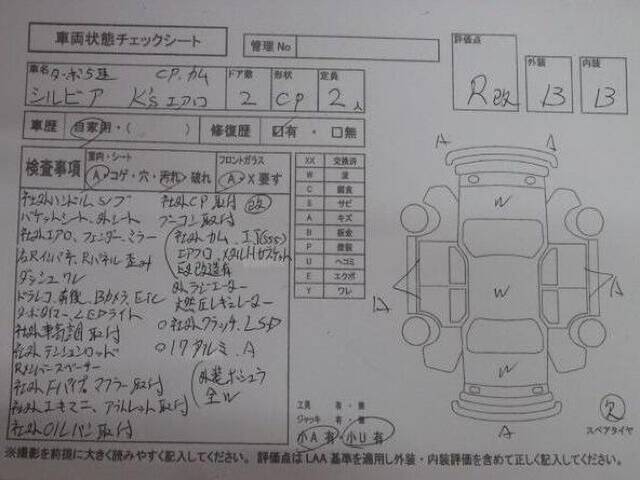 車両状態チェックシート
管理No
評価点
R改
外装
B
内装
B
車名 ターボ5速 CP.カム
シルビア K's エアロ
ドア数
2
形状
CP
定員
2人
車歴 自家用・( )
修復歴 ☑有・□無
検査事項
室内・シート
A コゲ・穴・汚れ・破れ
フロントガラス
A・X要す
社外ハンドル S/ブ
バケットシート、外シート
社外エアロ、フェンダー、ミラー
右Rインパネ、Rパネル歪み
ダッシュ ワレ
ドラレコ 前後、Bカメラ、ETC
ターボタイマー、LEDライト
社外車高調 取付
社外テンションロッド
Rメンバースペーサー
社外Fパイプ マフラー取付
社外エキマニ、アウトレット取付
社外OILパン取付
社外CP取付 改
ブーコン取付
社外カム、
エアフロ、メタルHガスケット
改造有
外ラジエーター
燃圧レギュレーター
○社外クラッチ、LSD
○17アルミ、A
外装
全W
XX 交換済
W 波
C 腐食
S サビ
A キズ
B 板金
P 塗装
U ヘゴミ
E エクボ
Y ワレ
工具 有・無
ジャッキ 有・無
小A有 小U有
A
A
W
A
W
A
W
A
欠
スペアタイヤ
※撮影を前提に大きく読みやすく記入してください。 評価点はLAA基準を適用し外装・内装評価を含めて正しく記入してください。